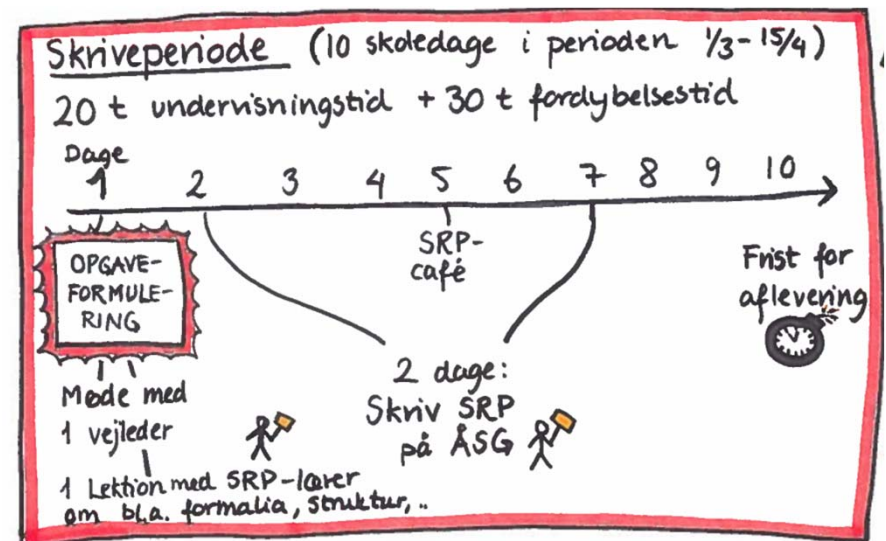 Skriveperiode (10 skoledage i perioden 1/3 - 15/4)
20 t undervisningstid + 30 t fordybelsestid
Dage
1 2 3 4 5 6 7 8 9 10
OPGAVE-
FORMULE-
RING
SRP-
café
Frist for
aflevering
Møde med
1 vejleder
1 Lektion med SRP-lærer
om bl.a. formalia, struktur, ..
2 dage:
Skriv SRP
på ÅSG